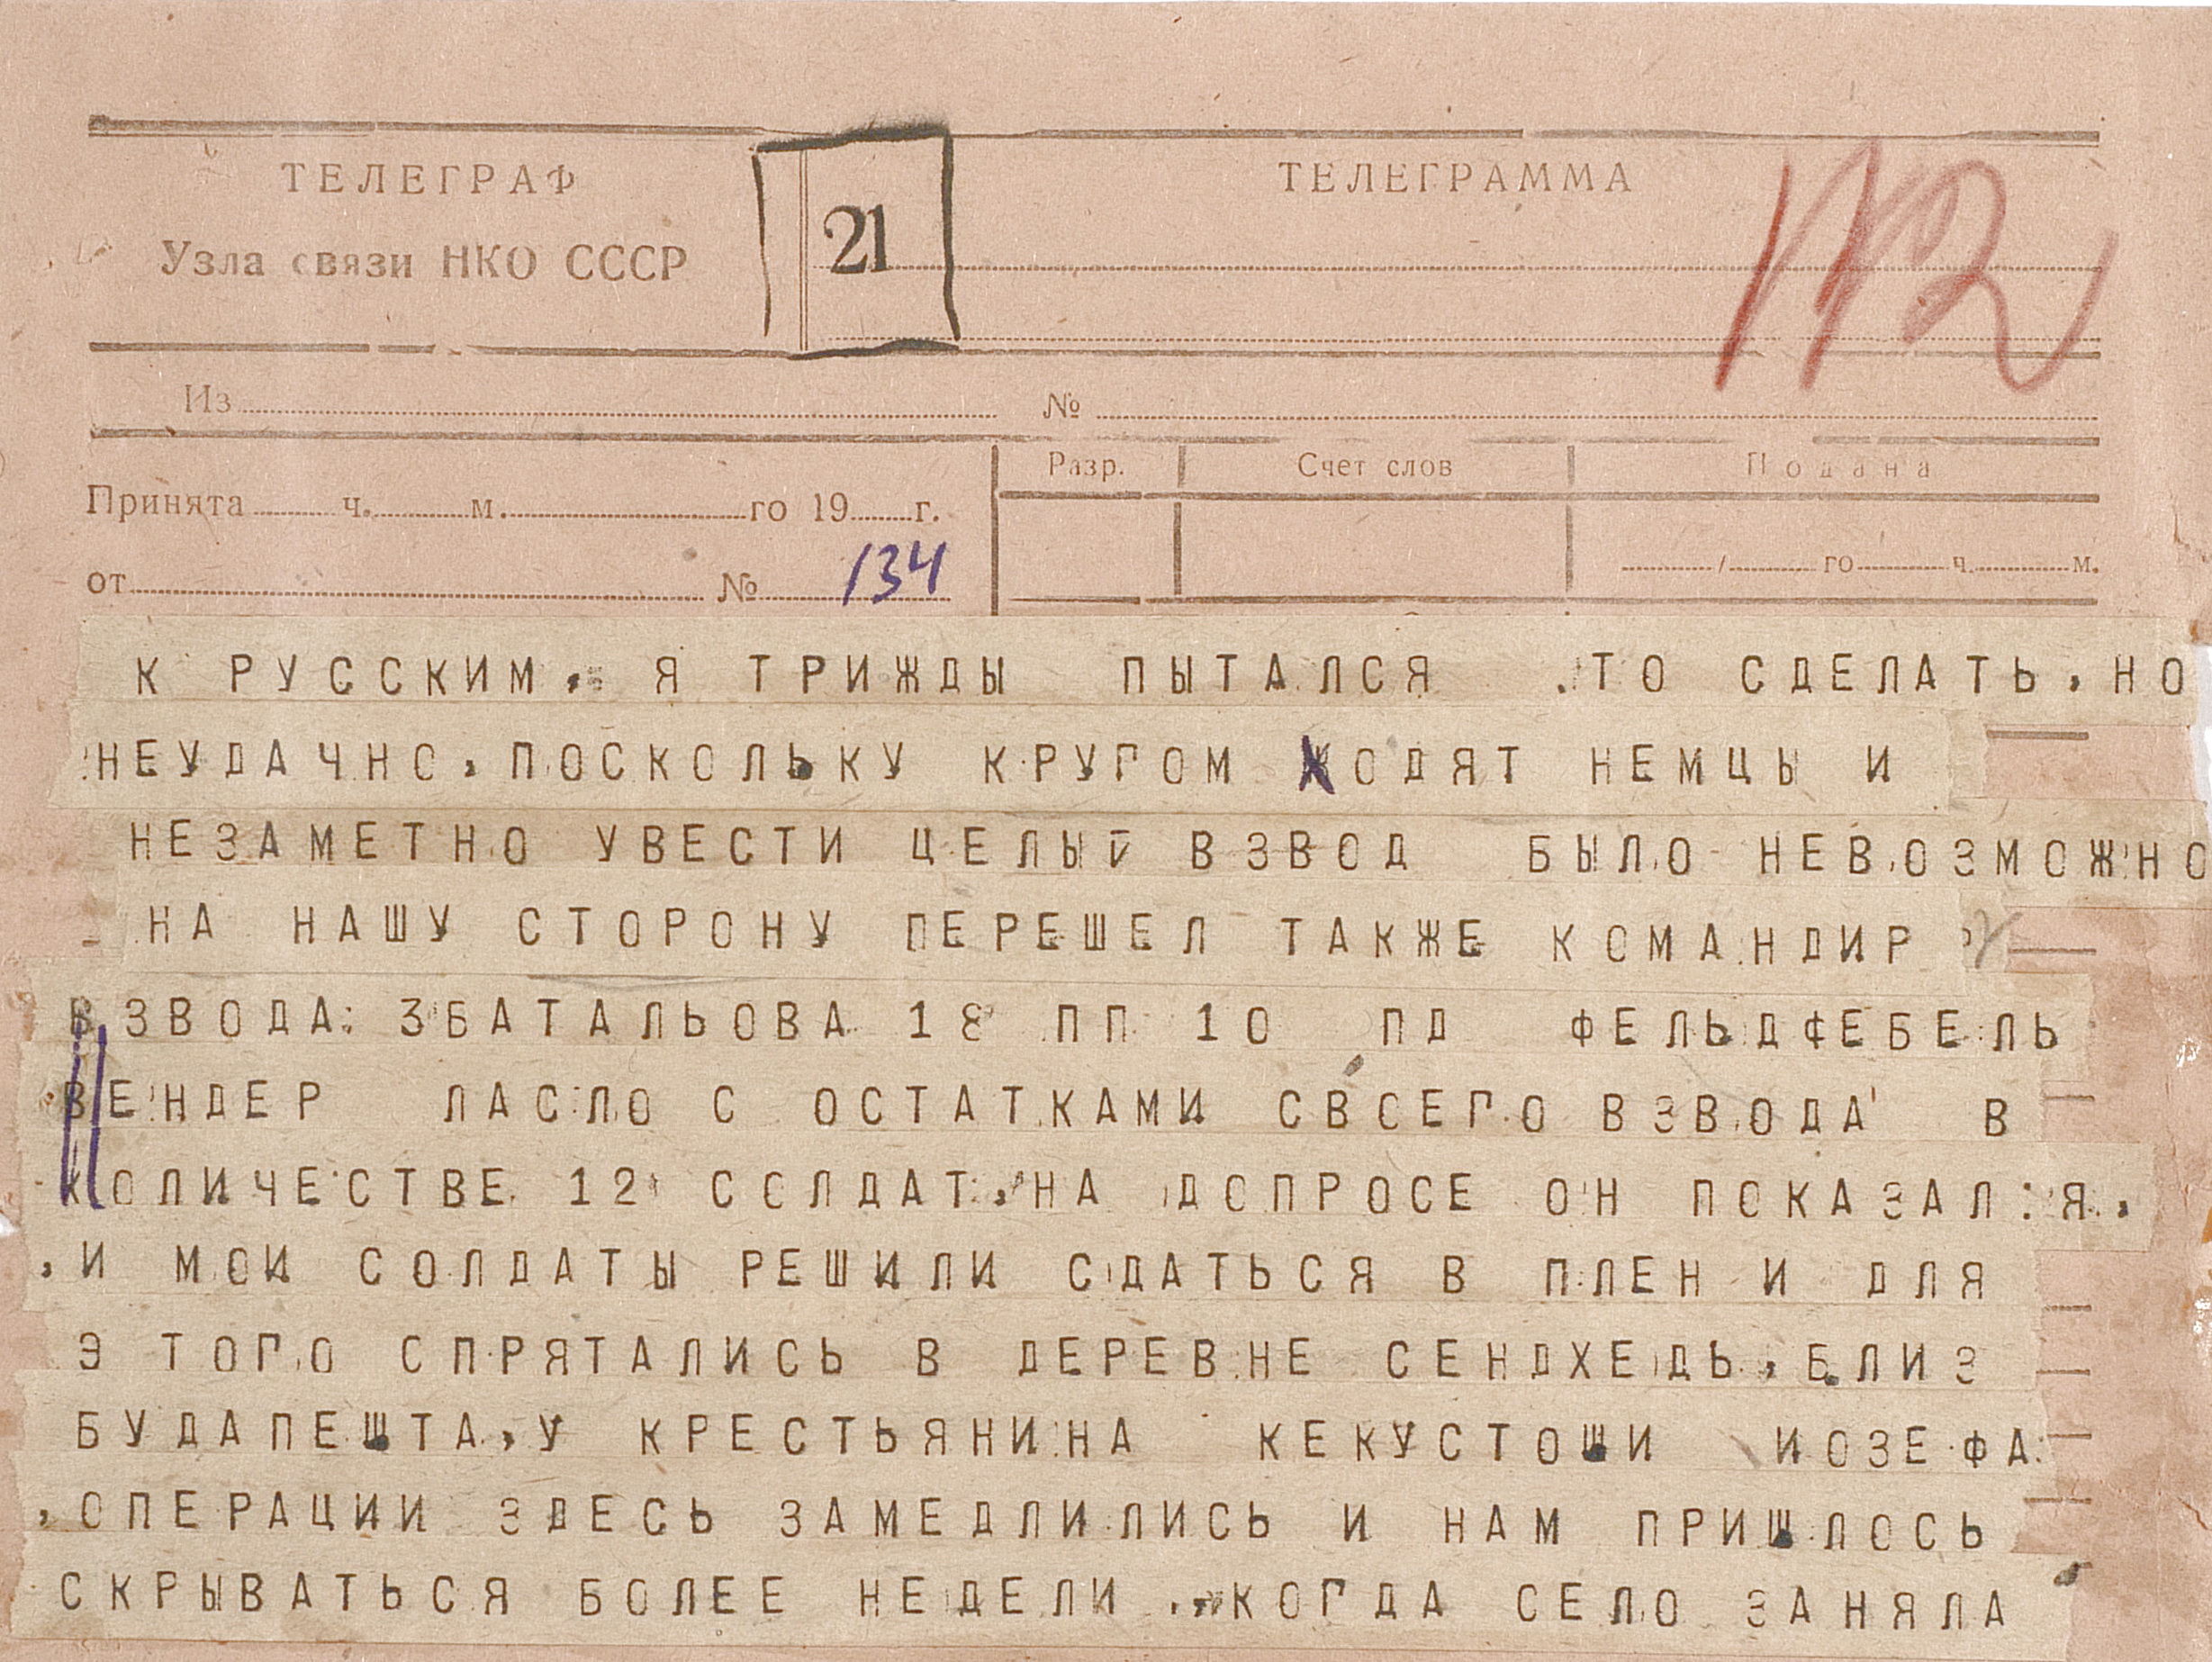 ТЕЛЕГРАФ
Узла связи НКО СССР
21
ТЕЛЕГРАММА
112
Из № 
Принята ч. м. го 19 г.
Разр. Счет слов Подана
от № 134
/ го ч. м.
К РУССКИМ. Я ТРИЖДЫ ПЫТАЛСЯ .ТО СДЕЛАТЬ, НО
НЕУДАЧНО, ПОСКОЛЬКУ КРУГОМ ХОДЯТ НЕМЦЫ И
НЕЗАМЕТНО УВЕСТИ ЦЕЛЫЙ ВЗВОД БЫЛО НЕВОЗМОЖНО
НА НАШУ СТОРОНУ ПЕРЕШЕЛ ТАКЖЕ КОМАНДИР
ВЗВОДА 3БАТАЛЬОВА 18 ПП 10 ПД ФЕЛЬДФЕБЕЛЬ
ВЕНДЕР ЛАСЛО С ОСТАТКАМИ СВОЕГО ВЗВОДА В
КОЛИЧЕСТВЕ 12 СОЛДАТ. НА ДОПРОСЕ ОН ПОКАЗАЛ: Я,
,И МОИ СОЛДАТЫ РЕШИЛИ СДАТЬСЯ В ПЛЕН И ДЛЯ
Э ТОГО СПРЯТАЛИСЬ В ДЕРЕВНЕ СЕНДХЕДЬ, БЛИЗ
БУДАПЕШТА, У КРЕСТЬЯНИНА КЕКУСТОШИ ИОЗЕФА
,ОПЕРАЦИИ ЗДЕСЬ ЗАМЕДЛИЛИСЬ И НАМ ПРИШЛОСЬ
СКРЫВАТЬСЯ БОЛЕЕ НЕДЕЛИ ., КОГДА СЕЛО ЗАНЯЛА